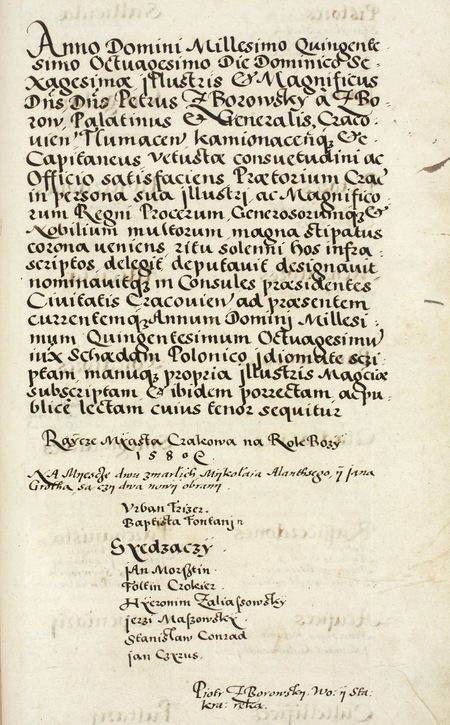 Anno Domini Millesimo Quingente
simo Octuagesimo Die Dominico Se
xagesimæ jllustris & Magnificus
Dn̄s Dn̄s Petrus Z Borowsky à ZBo
row, Palatinus & Generalis, Craco
vien̄ Tlumacen̄ Kamionacenq; &c
Capitaneus vetustæ consuetudini ac
Officio satisfaciens Prætorium Crac̄
in persona sua jllustri ac Magnifico
rum Regni Procerum, Generosorumq; &
Nobilium multorum, magna stipatus
corona veniens, ritu solenni hos infra
scriptos delegit deputavit designavit
nominavitq; in Consules præsidentes
Civitatis Cracovien̄ ad præsentem
currentemq; Annum Domini Millesi
mum Quingentesimum Octuagesimū
iuxˢ Schædam Polonico jdiomate scri
ptam, manuq; propria jllustris Mag̅ciæ
subscriptam, & ibidem porrectam, ac pu
blice lectam cuius tenor sequitur
Raycze Myasta Crakowa na Rok Bozy
1580
NA Myescze dwu zmarlich Mykolaia Alanthsego, ÿ Jana
Grotha są czy dwa nowy obrani.
Vrban Frizer.
Baptista Fontanin
Syedzaczy.
JAn Morsztin.
Foltin Crokier.
Hyeronim Zaliassowsky
jerzi Maszowsky.
Stanislaw Conrad
jan Czyrus.
Piotr ZBorowsky. Wo: ÿ Sta:
kra: ręka.